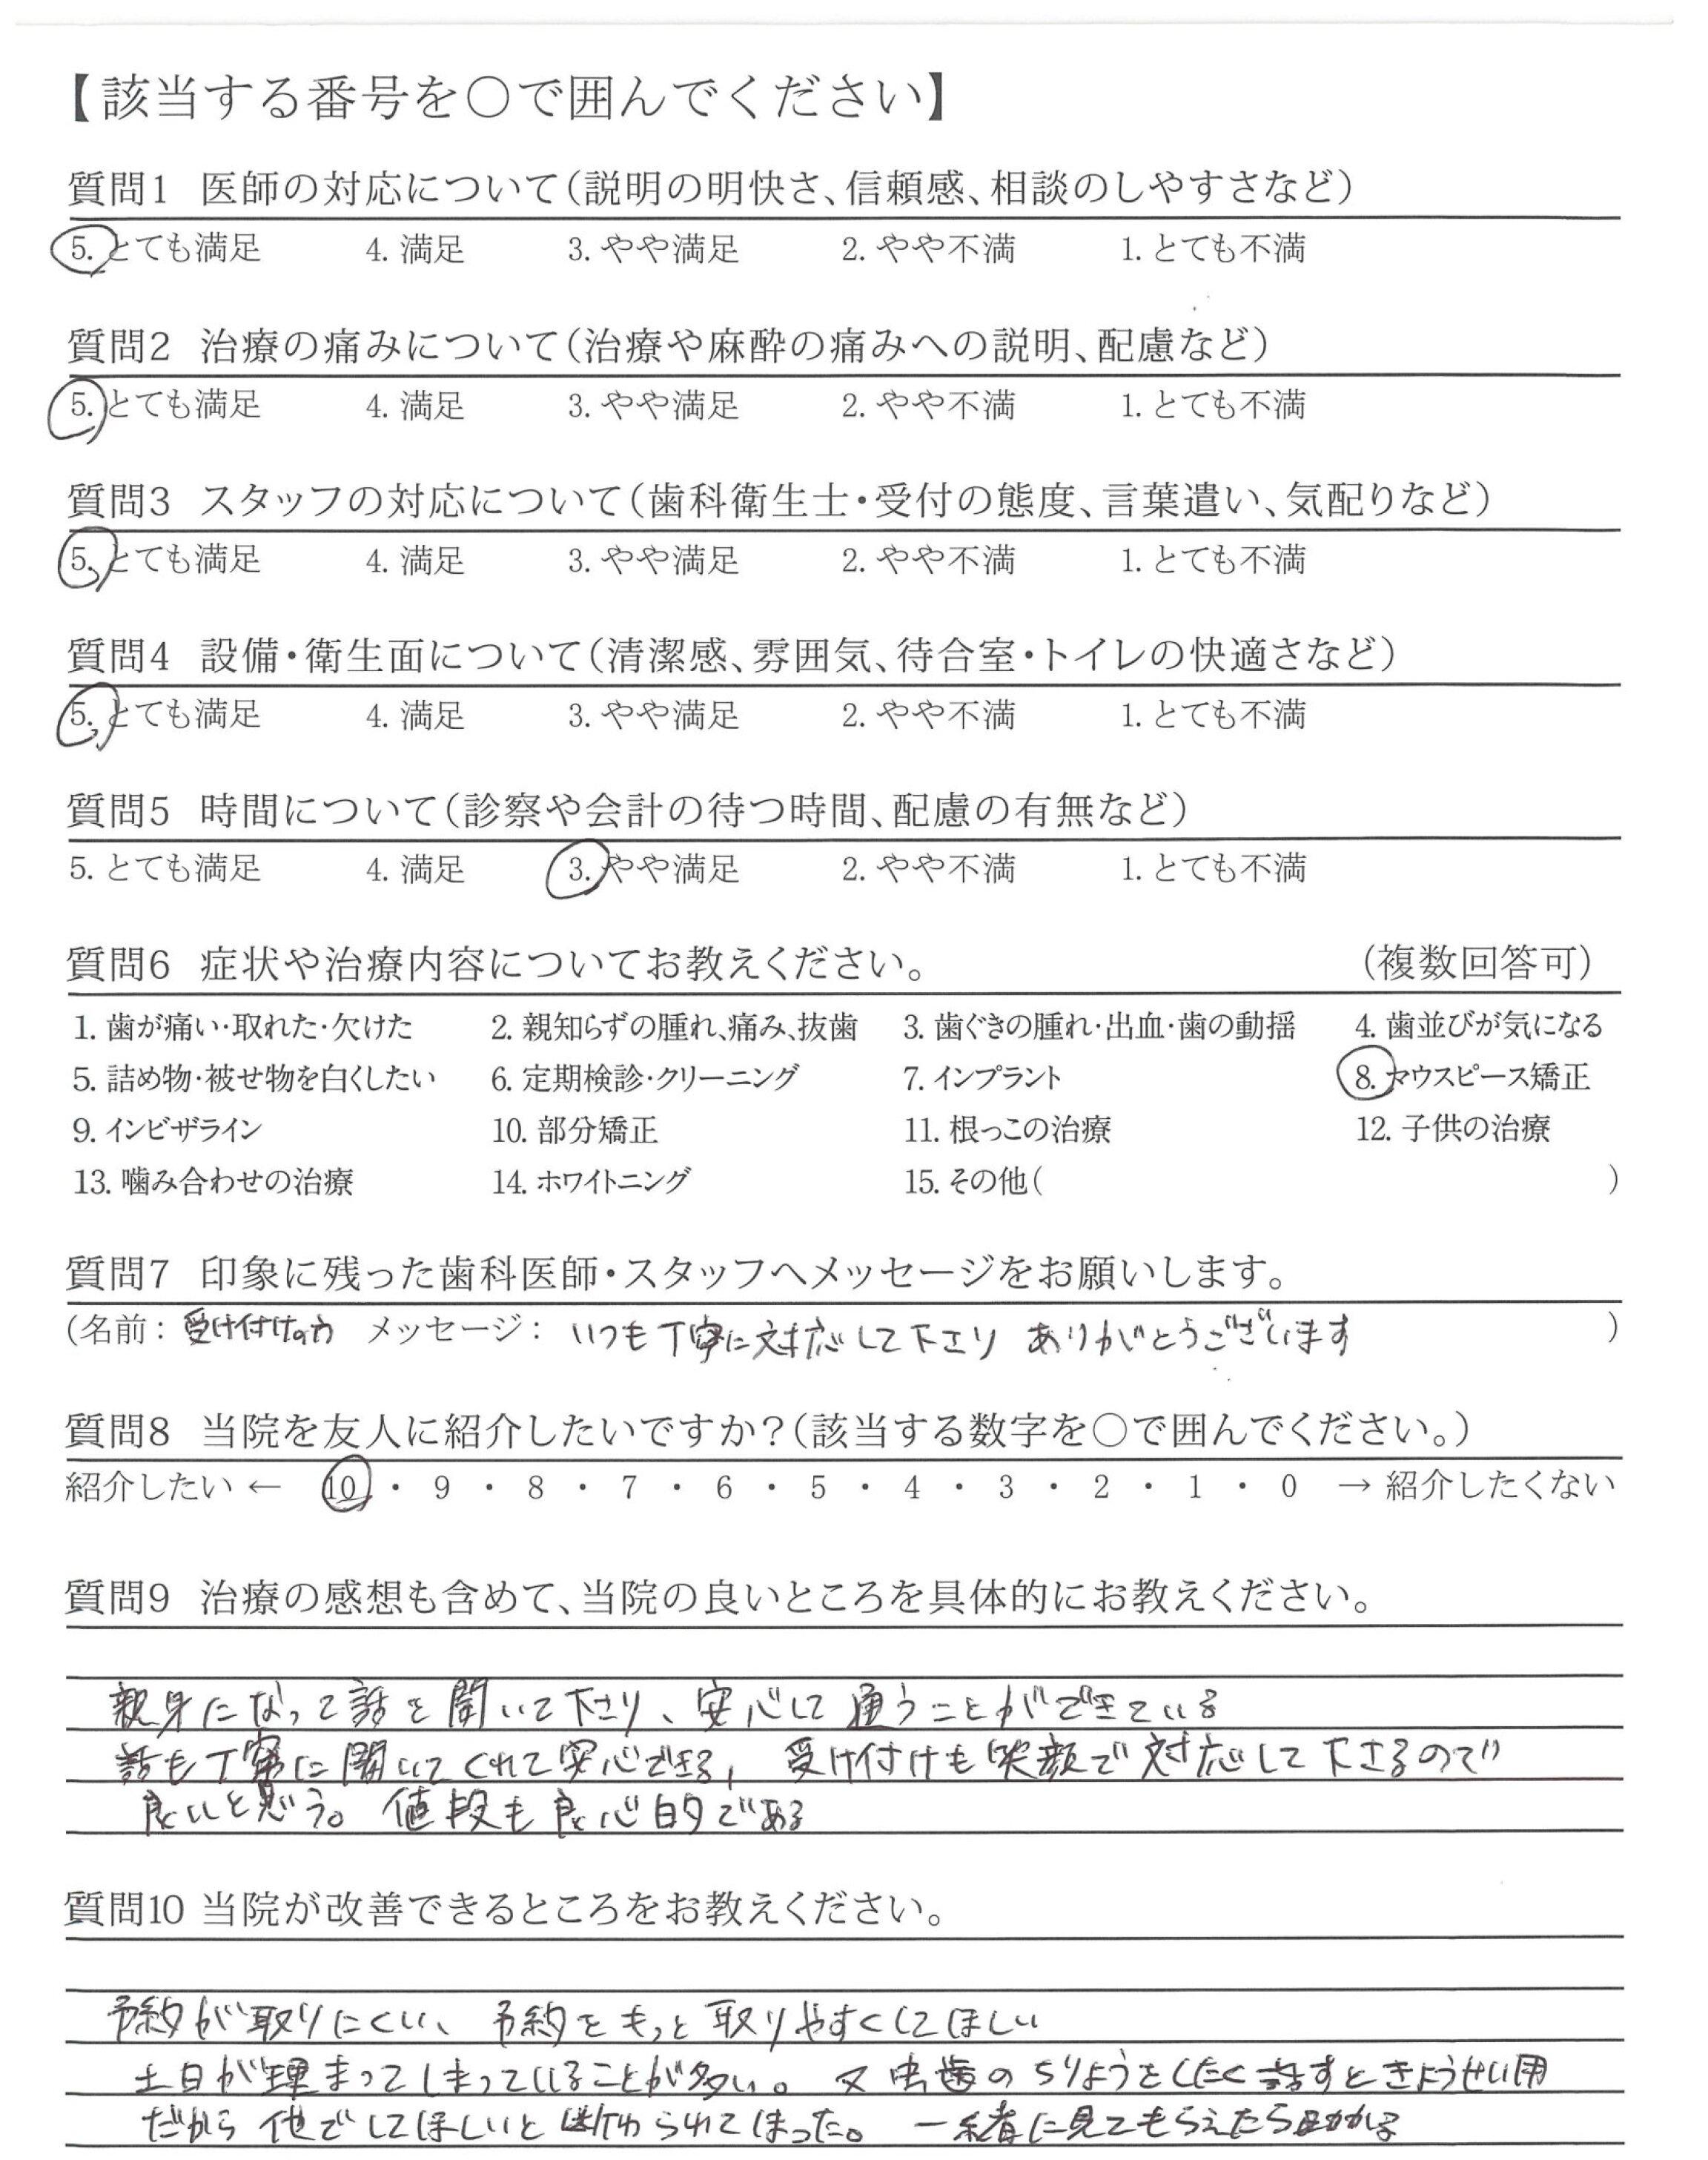 【該当する番号を〇で囲んでください】
質問1 医師の対応について（説明の明快さ、信頼感、相談のしやすさなど）
5. とても満足 4. 満足 3. やや満足 2. やや不満 1. とても不満
質問2 治療の痛みについて（治療や麻酔の痛みへの説明、配慮など）
5. とても満足 4. 満足 3. やや満足 2. やや不満 1. とても不満
質問3 スタッフの対応について（歯科衛生士・受付の態度、言葉遣い、気配りなど）
5. とても満足 4. 満足 3. やや満足 2. やや不満 1. とても不満
質問4 設備・衛生面について（清潔感、雰囲気、待合室・トイレの快適さなど）
5. とても満足 4. 満足 3. やや満足 2. やや不満 1. とても不満
質問5 時間について（診察や会計の待つ時間、配慮の有無など）
5. とても満足 4. 満足 3. やや満足 2. やや不満 1. とても不満
質問6 症状や治療内容についてお教えください。 （複数回答可）
1. 歯が痛い・取れた・欠けた 2. 親知らずの腫れ、痛み、抜歯 3. 歯ぐきの腫れ・出血・歯の動揺 4. 歯並びが気になる
5. 詰め物・被せ物を白くしたい 6. 定期検診・クリーニング 7. インプラント 8. マウスピース矯正
9. インビザライン 10. 部分矯正 11. 根っこの治療 12. 子供の治療
13. 噛み合わせの治療 14. ホワイトニング 15. その他（ ）
質問7 印象に残った歯科医師・スタッフへメッセージをお願いします。
（名前： 受け付けの方 メッセージ： いつも丁寧に対応して下さり ありがとうございます ）
質問8 当院を友人に紹介したいですか？（該当する数字を〇で囲んでください。）
紹介したい ← 10 ・ 9 ・ 8 ・ 7 ・ 6 ・ 5 ・ 4 ・ 3 ・ 2 ・ 1 ・ 0 → 紹介したくない
質問9 治療の感想も含めて、当院の良いところを具体的にお教えください。
親身になって話を聞いて下さり、安心して通うことができている
話も丁寧に聞いてくれて安心できる, 受け付けも笑顔で対応して下さるので
良いと思う。 値段も良心的である
質問10 当院が改善できるところをお教えください。
予約が取りにくい、予約をもっと取りやすくしてほしい
土日が埋まってしまっていることが多い。 又虫歯のちりょうをしたく話すときょうせい用
だから 他でしてほしいと断わられてしまった。 一緒に見てもらえたら助かる